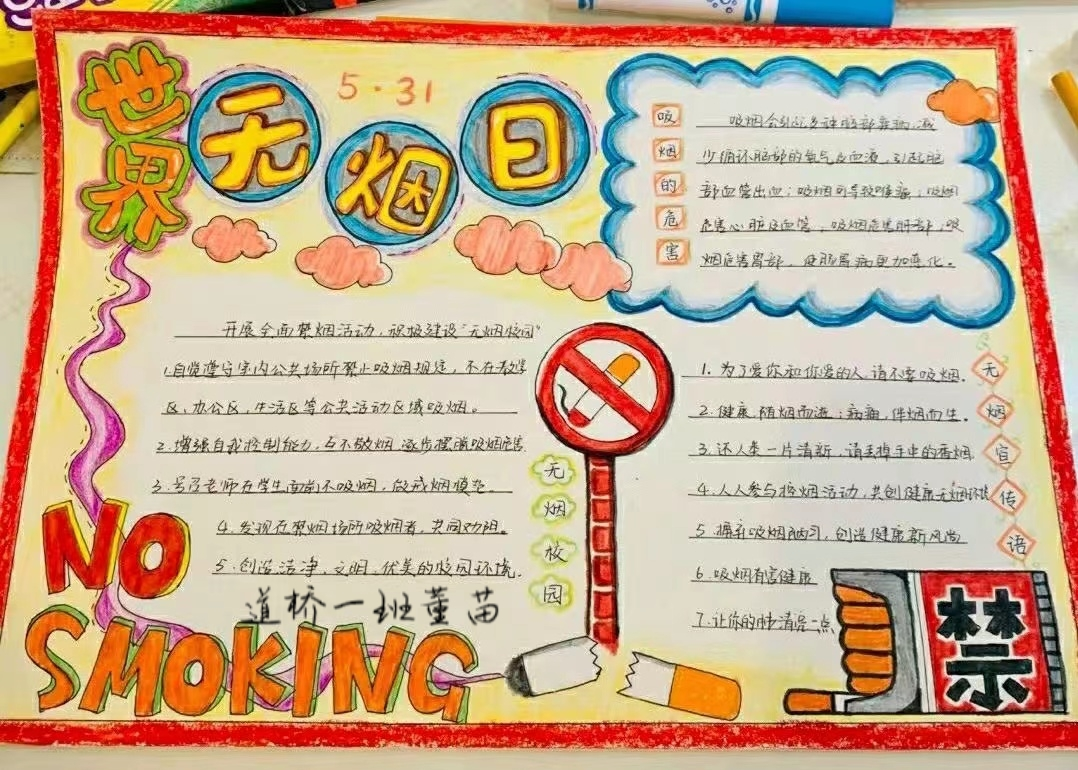 世界
无烟日
5·31
吸烟的危害
吸烟会引起多种脑部疾病，减
少循环脑部的氧气及血液，引起脑
部血管出血；吸烟可导致喉癌；吸烟
危害心脏及血管，吸烟危害肝部，吸
烟危害胃部，使肠胃病更加恶化。
开展全面禁烟活动，积极建设“无烟校园”
1.自觉遵守室内公共场所禁止吸烟规定，不在教学
区、办公区、生活区等公共活动区域吸烟。
2.增强自我控制能力，互不敬烟 逐步摆脱吸烟危害
3.号召老师在学生面前不吸烟，做戒烟模范。
4.发现在禁烟场所吸烟者，共同劝阻。
5.创造洁净、文明、优美的校园环境。
无烟校园
1.为了爱你和你爱的人，请不要吸烟.
2.健康，随烟而逝；病痛，伴烟而生.
3.还人类一片清新，请丢掉手中的香烟.
4.人人参与控烟活动，共创健康无烟环境
5.摒弃吸烟陋习，创造健康新风尚
6.吸烟有害健康
7.让你的肺清亮一点
无烟宣传语
道桥一班董苗
NO
SMOKING
禁